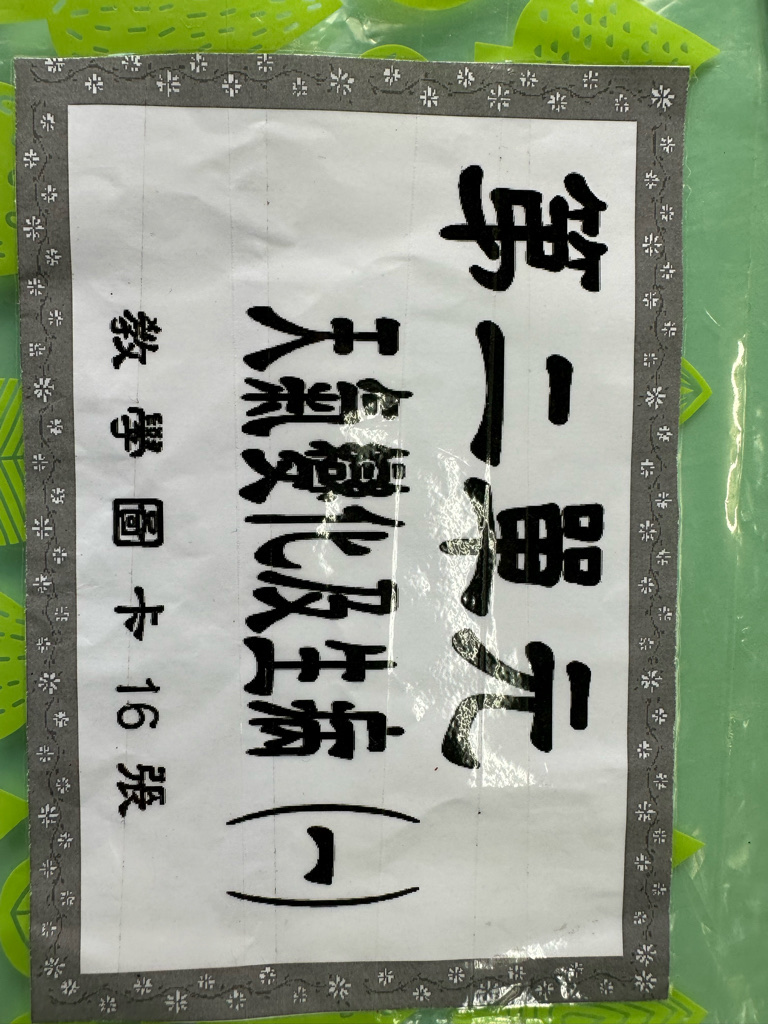 第二單元
天氣變化及生病(一)
教學圖卡16張